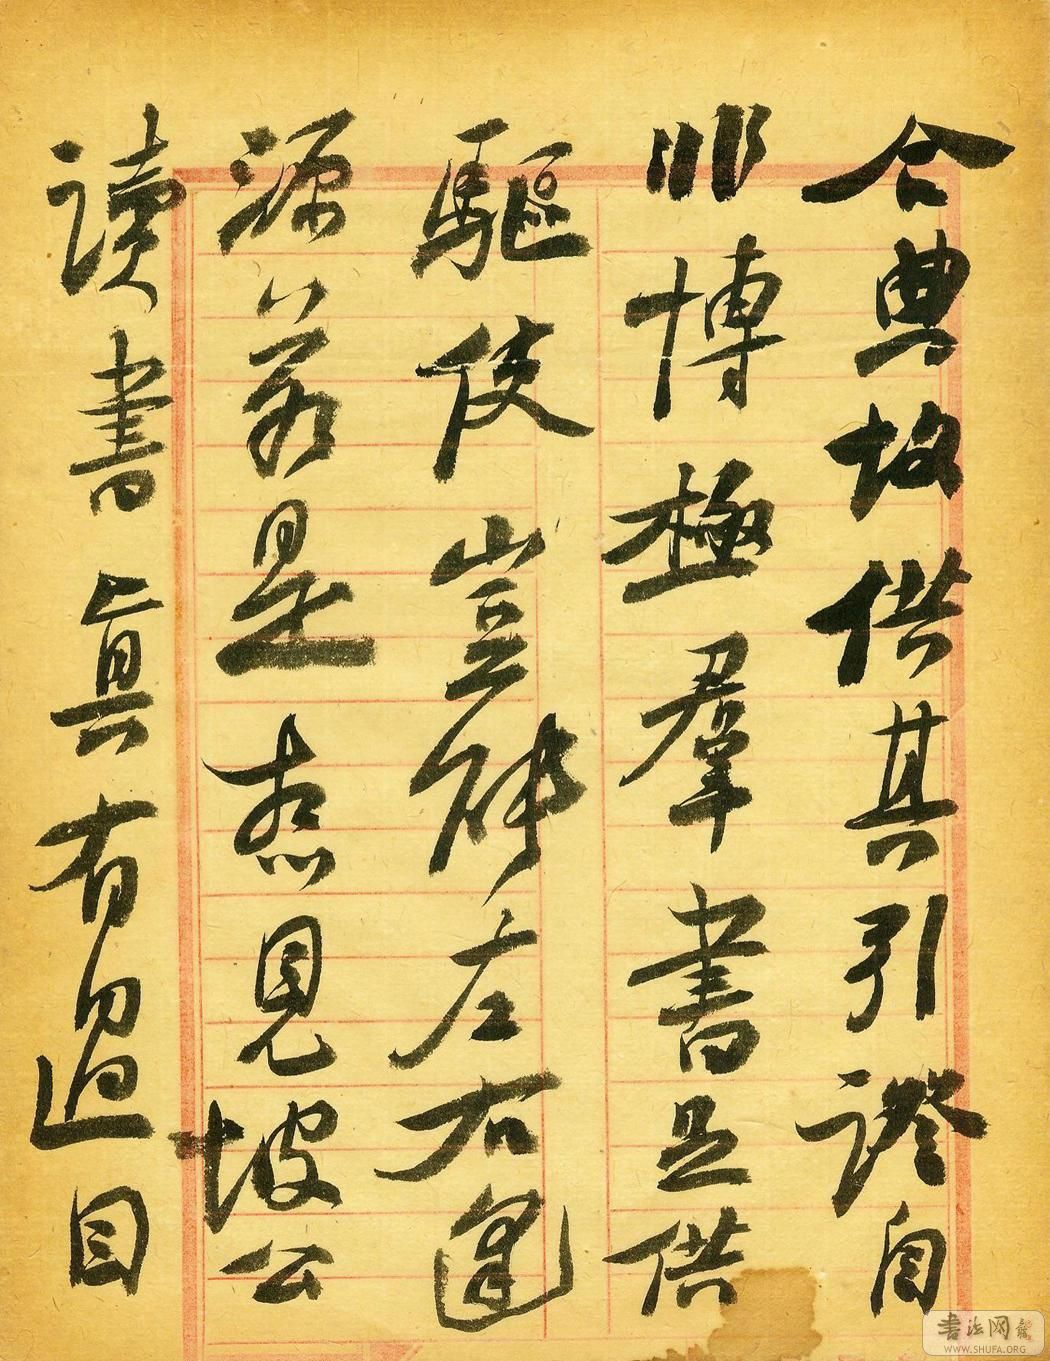 合典故供其引證自
非博極羣書足供
驅使豈能左右逢
源若是想見坡公
读書眞有過目
書法网
WWW.SHUFA.ORG